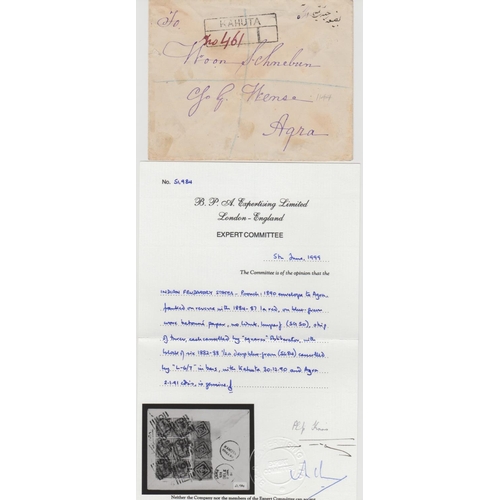 To
KAHUTA
No 461
Woon Schnebun
c/o G. Wense
Agra
No. 51,984
B. P. A. Expertising Limited
London - England
EXPERT COMMITTEE
5th June, 1999
The Committee is of the opinion that the
INDIAN FEUDATORY STATES - Poonch - 1890 envelope to Agra,
franked on reverse with 1884-87 1a red, on blue-green
wove batonné paper, no (SG 50), strip
of three, each cancelled by "squares" obliterator, with
block of six 1882-88 ½a deep blue-green (SG84) cancelled
by "L-6/7" in bars, with Kahuta 30.12.90 and Agra
2.1.91 cds's, is genuine.
Neither the Company nor the members of the Expert Committee can